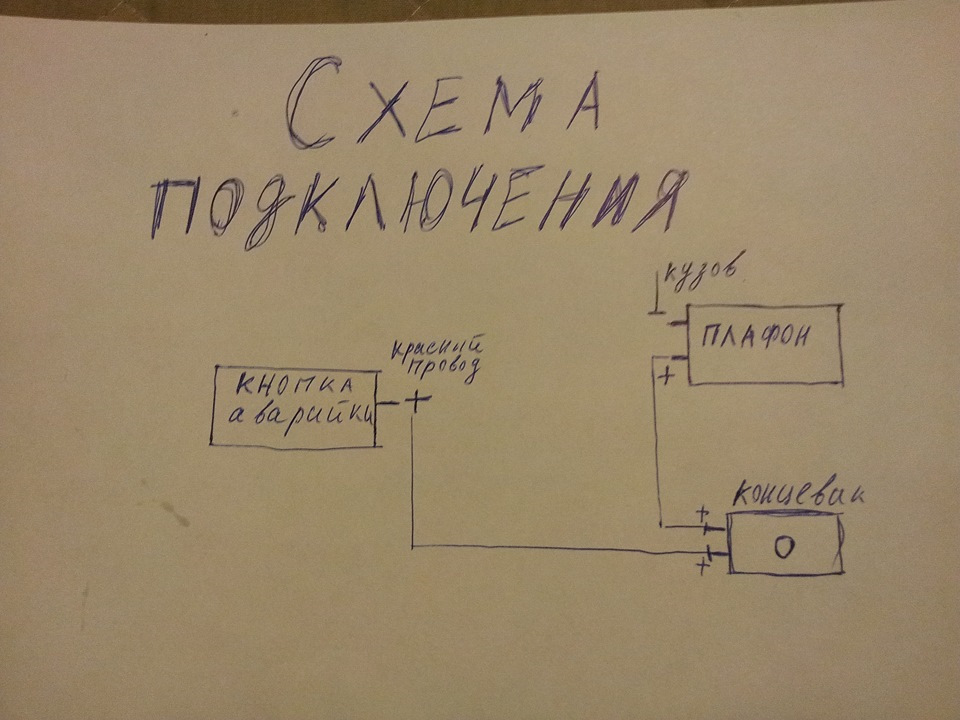 Схема
подключения
кузов
плафон
+
красный
провод
+
кнопка
аварийки
концевик
+
+